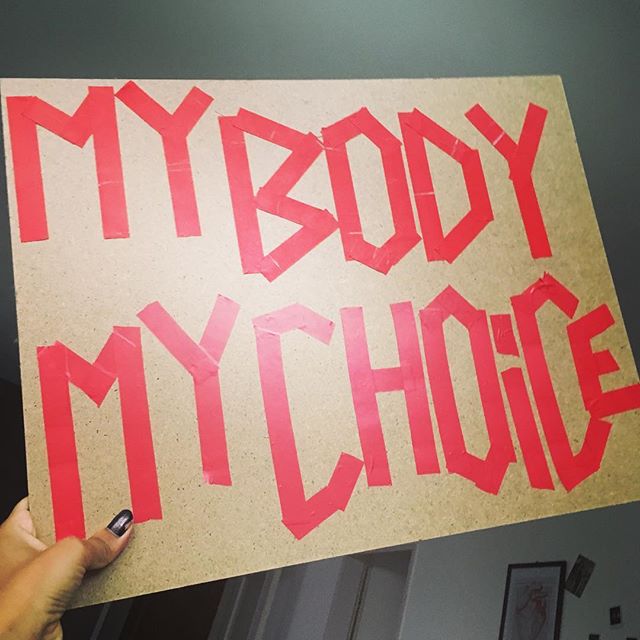 MY BODY
MY CHOiCE